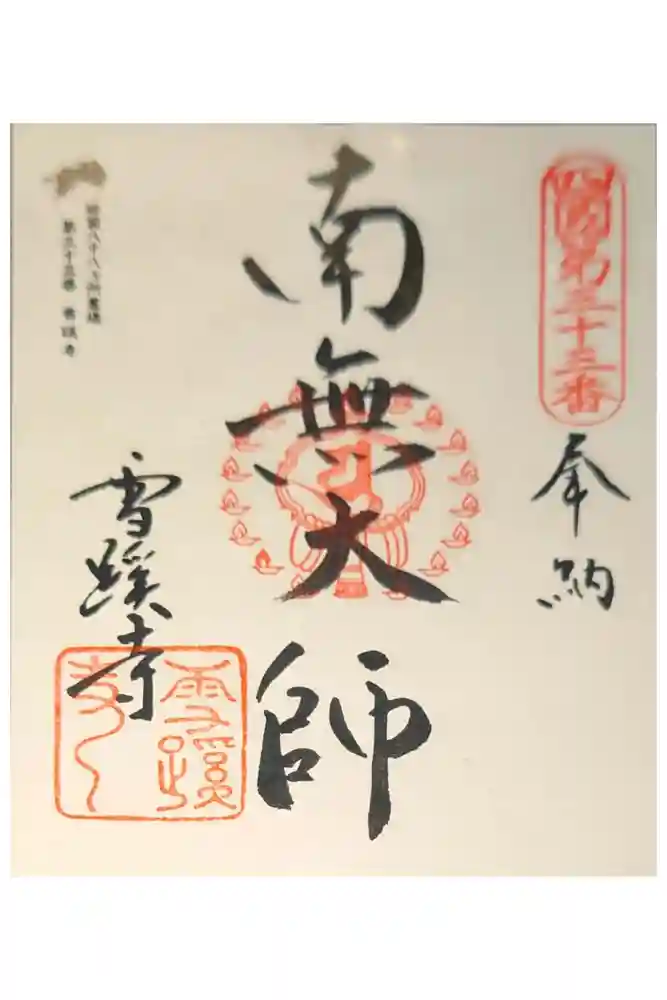 四国第三十三番
奉納
南無大師
四国八十八ヶ所霊場
第三十三番 雪蹊寺
雪蹊寺
雪蹊